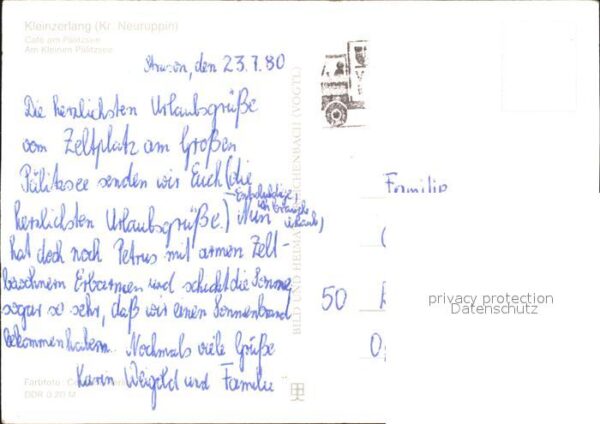 Kleinzerlang (Kr. Neuruppin)
Café am Pälitzsee
Am Kleinen Pälitzsee
Strasen, den 23.7.80
Die herzlichsten Urlaubsgrüße
vom Zeltplatz am Großen
Pälitzsee senden wir Euch (die
herzlichsten Urlaubsgrüße.) Nun
hat doch noch Petrus mit armen Zelt-
bewohnern Erbarmen und schickt die Sonne,
sogar so sehr, daß wir einen Sonnenbrand
bekommen haben. Nochmals viele Grüße
Karin Weigold und Familie
DDR 0,20 M
BILD UND HEIMAT REICHENBACH (VOGTL)
Familie
50
privacy protection
Datenschutz